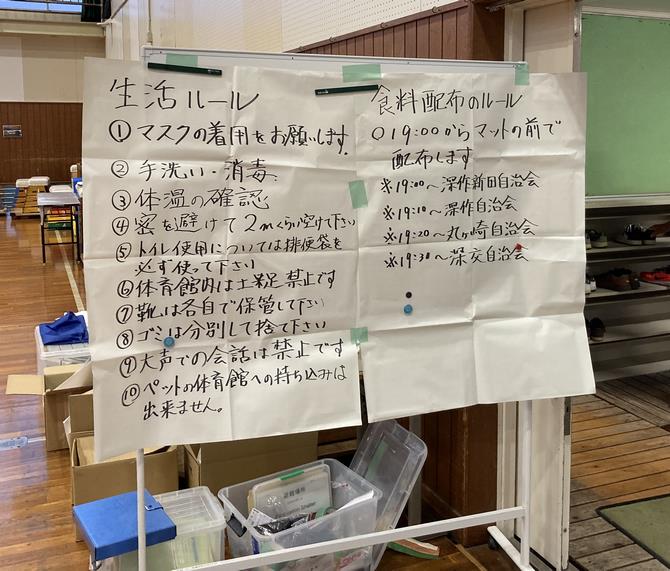 生活ルール
① マスクの着用をお願いします.
② 手洗い・消毒
③ 体温の確認
④ 密を避けて2mくらい空けて下さい
⑤ トイレ使用については排便袋を
必ず使って下さい
⑥ 体育館内は土足禁止です
⑦ 靴は各自で保管して下さい
⑧ ゴミは分別して捨て下さい
⑨ 大声での会話は禁止です
⑩ ペットの体育館への持ち込みは
出来ません。
食料配布のルール
○19:00からマットの前で
配布します
※19:00〜深作新田自治会
※19:10〜深作自治会
※19:20〜丸ヶ崎自治会
※19:30〜深安自治会
避難場所